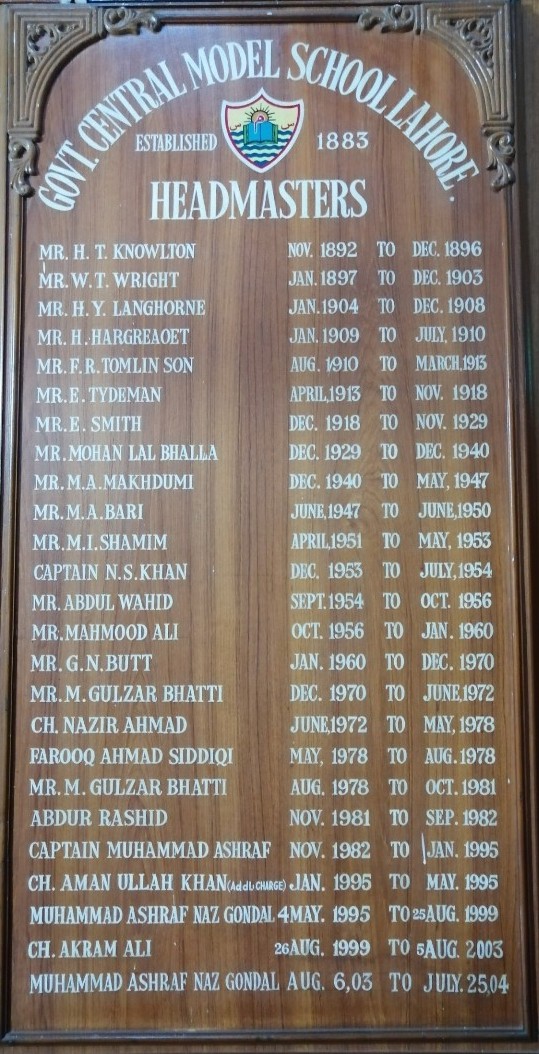 GOVT. CENTRAL MODEL SCHOOL LAHORE.
ESTABLISHED 1883
HEADMASTERS
MR. H. T. KNOWLTON NOV. 1892 TO DEC. 1896
MR. W. T. WRIGHT JAN. 1897 TO DEC. 1903
MR. H. Y. LANGHORNE JAN. 1904 TO DEC. 1908
MR. H. HARGREAOET JAN. 1909 TO JULY, 1910
MR. F. R. TOMLIN SON AUG. 1910 TO MARCH,1913
MR. E. TYDEMAN APRIL,1913 TO NOV. 1918
MR. E. SMITH DEC. 1918 TO NOV. 1929
MR. MOHAN LAL BHALLA DEC. 1929 TO DEC. 1940
MR. M. A. MAKHDUMI DEC. 1940 TO MAY, 1947
MR. M. A. BARI JUNE,1947 TO JUNE,1950
MR. M. I. SHAMIM APRIL,1951 TO MAY, 1953
CAPTAIN N. S. KHAN DEC. 1953 TO JULY,1954
MR. ABDUL WAHID SEPT. 1954 TO OCT. 1956
MR. MAHMOOD ALI OCT. 1956 TO JAN. 1960
MR. G. N. BUTT JAN. 1960 TO DEC. 1970
MR. M. GULZAR BHATTI DEC. 1970 TO JUNE,1972
CH. NAZIR AHMAD JUNE,1972 TO MAY, 1978
FAROOQ AHMAD SIDDIQI MAY, 1978 TO AUG. 1978
MR. M. GULZAR BHATTI AUG. 1978 TO OCT. 1981
ABDUR RASHID NOV. 1981 TO SEP. 1982
CAPTAIN MUHAMMAD ASHRAF NOV. 1982 TO JAN. 1995
CH. AMAN ULLAH KHAN (AddL CHARGE) JAN. 1995 TO MAY. 1995
MUHAMMAD ASHRAF NAZ GONDAL 4 MAY. 1995 TO 25 AUG. 1999
CH. AKRAM ALI 26 AUG. 1999 TO 5 AUG. 2003
MUHAMMAD ASHRAF NAZ GONDAL AUG. 6,03 TO JULY. 25,04